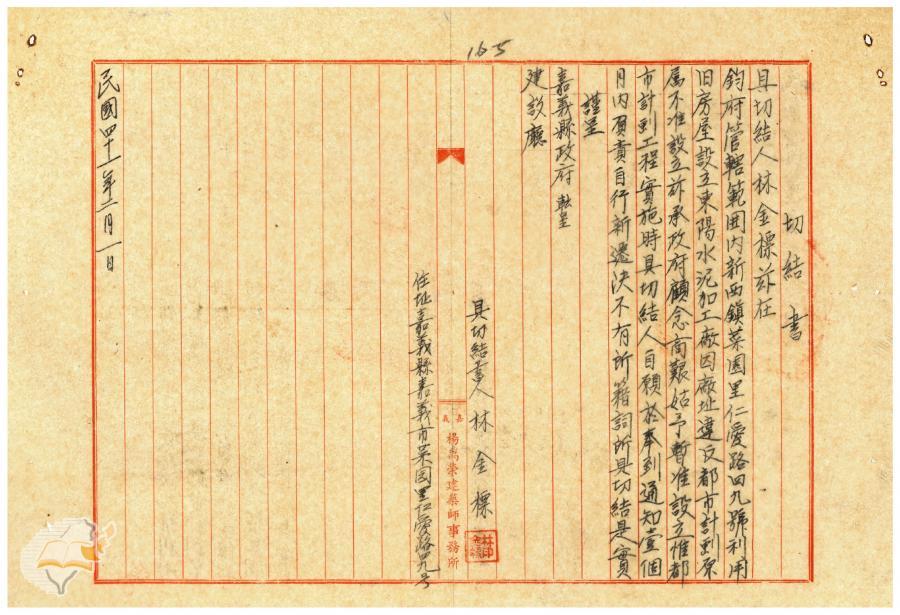 165
切結書
具切結人林金標茲在
鈞府管轄範囲内新西鎮菜園里仁愛路四九號利用
旧房屋設立東陽水泥加工廠因廠址違反都市計劃原
属不准設立訴承政府顧念商艱姑予暫准設立惟都
市計劃工程實施時具切結人自願於奉到通知壹個
月内負責自行新遷決不有所籍詞所具切結是實
謹呈
嘉義縣政府 轉呈
建設廳
具切結書人 林金標
住址嘉義縣嘉義市菜园里仁愛路四九号
嘉義 楊嵩榮建築師事務所
民國四十一年二月一日